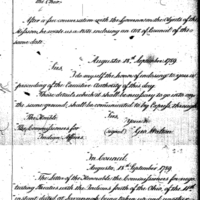 the Chair.
After a free conversation with the Governor on the Objects of the
Mission, he wrote us a Note enclosing an Act of Council of the
same date.
Augusta 12th September 1789.
Sirs,
I do myself the honor of enclosing to you a
proceeding of the Executive Authority of this day.
Those details which it shall be necessary to go into upon
the same ground, shall be communicated to by Express through
The Honble
The Commissioners for
Indian Affairs
Yours &c
(signed) Geo. Walton
In Council,
Augusta, 12th September 1789
The Letter of the Honorable the Commissioners for negotiating
Treaties with the Indians South of the Ohio, of the 11th
instant dated at Savannah being taken up and